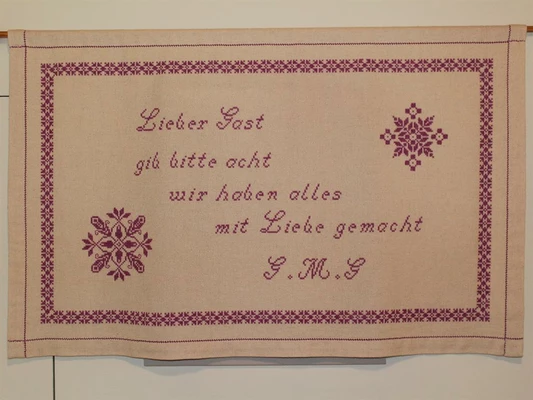 Lieber Gast
gib bitte acht
wir haben alles
mit Liebe gemacht
G.M.G